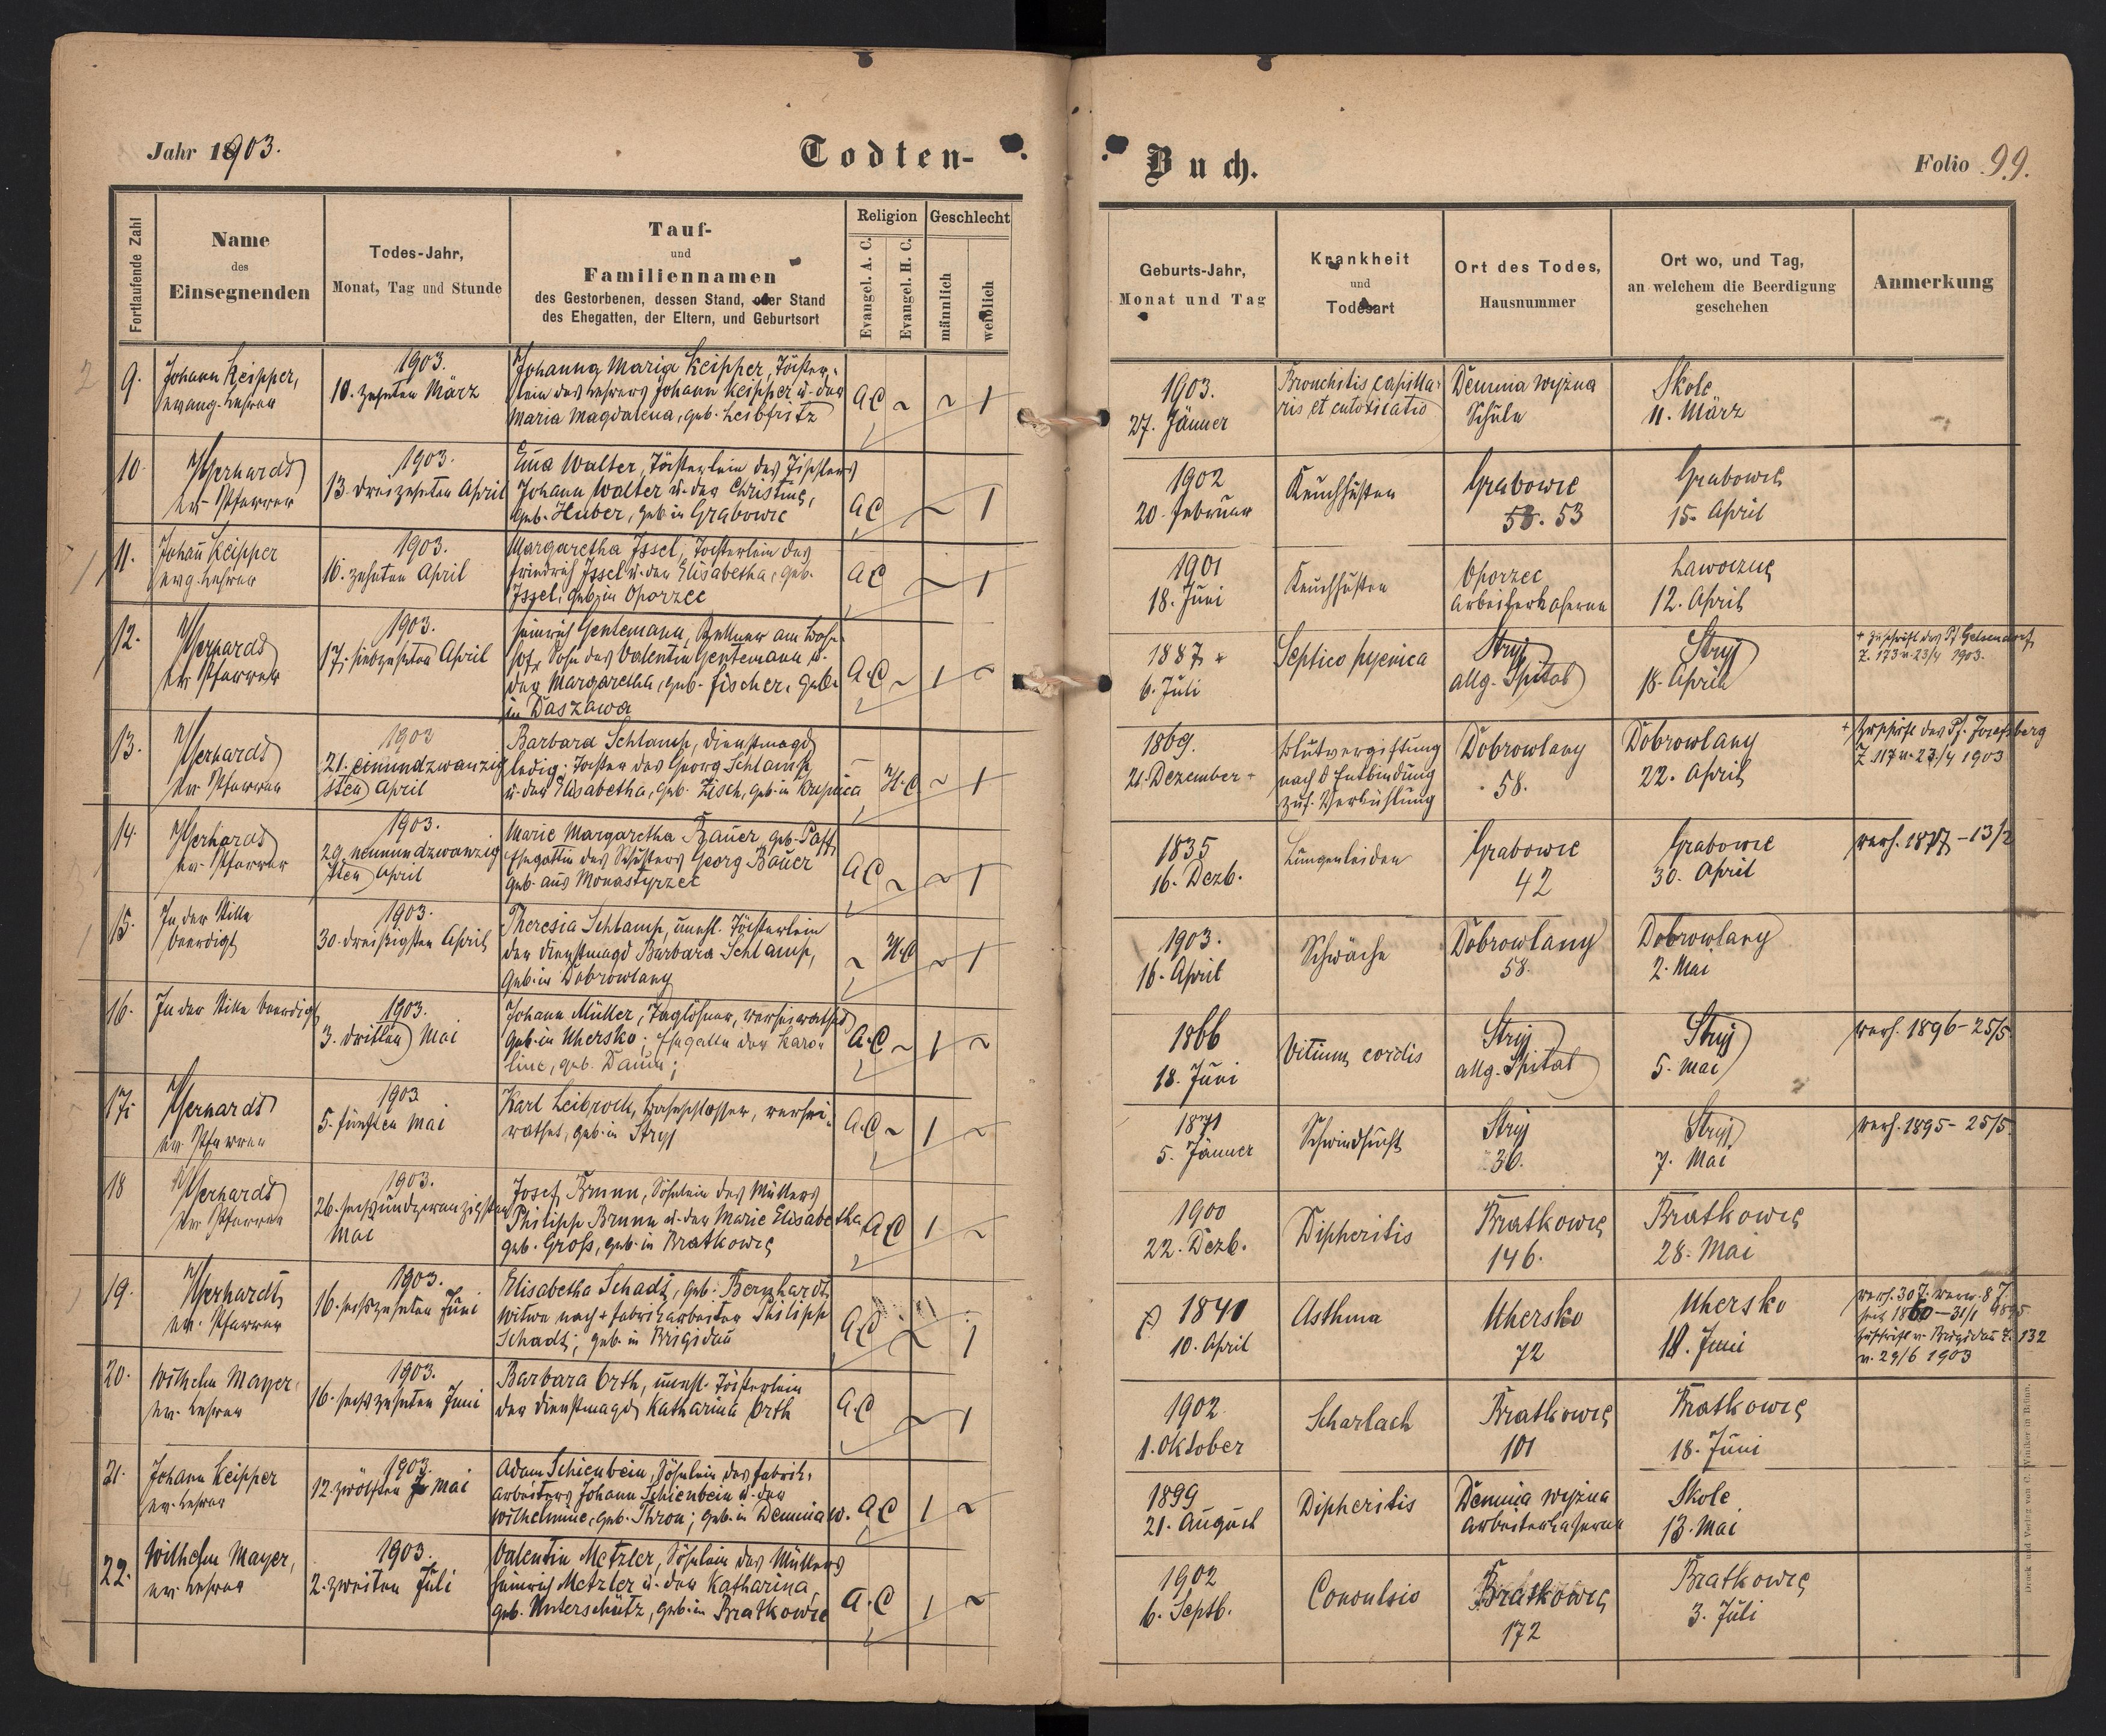 Jahr 1903.
Todten-
Fortlaufende Zahl
Name
des
Einsegnenden
Todes-Jahr,
Monat, Tag und Stunde
Tauf-
und
Familiennamen
des Gestorbenen, dessen Stand, oder Stand
des Ehegatten, der Eltern, und Geburtsort
Religion
Evangel. A. C.
Evangel. H. C.
Geschlecht
männlich
weiblich
9.
Johann Keipper,
evang. Lehrer
1903.
10. zehnten März
Johanna Maria Keipper, Töchter-
lein des Lehrers Johann Keipper u. der
Maria Magdalena, geb. Leibfritz
A C ~ ~ 1
10.
ev. Pfarrer
1903.
13. dreizehnten April
Ema Walter, Töchterlein des Tischlers
Johann Walter u. der Christine,
geb. Huber, geb. in Grabowic
A C ~ 1
11.
Johañ Keipper
evg. Lehrer
1903.
10. zehnten April
Margaretha Issel, Tochterlein des
Friedrich Issel u. der Elisabetha, geb.
Issel, geb. in Oporzec
A C ~ 1
12.
ev. Pfarrer
1903.
17. siebzehnten April
Heinrich Gentemann, Kellner am Bahn-
hof, Sohn des Valentin Gentemann u.
der Margaretha, geb. Fischer, geb.
in Daszawa
A. C ~ 1 ~
13.
ev. Pfarrer
1903
21. einundzwanzig
sten April
Barbara Schlamp, Dienstmagd
ledig. Tochter des Georg Schlamp
u. der Elisabetha, geb. Zisch, geb. in
H. C ~ 1
14.
ev. Pfarrer
1903.
29. neunundzwanzig
sten April
Marie Margaretha Bauer, geb. Paff,
Ehegattin des Schusters Georg Bauer
geb. aus Monastyrzec
A C ~ ~ 1
15.
In der Stille
beerdigt
1903.
30. dreißigsten April
Theresia Schlamp, unehl. Töchterlein
der Dienstmagd Barbara Schlamp,
geb. in Dobrowlany
~ H. C ~ 1
16.
In der Stille beerdigt
1903.
3. dritten Mai
Johann Müller, Taglöhner, verheirathet
geb. in Uhersko; Ehegatte der Karo-
line, geb. Daum;
A. C ~ 1 ~
17.
ev. Pfarrer
1903
5. fünften Mai
Karl Leibrock, Bahnschlosser, verhei-
rathet, geb. in Stryj
A. C ~ 1 ~
18
ev. Pfarrer
1903.
26. sechsundzwanzigsten
Mai
Josef Brunn, Söhnlein des Müllers
Philipp Brunn u. der Marie Elisabetha
geb. Groß, geb. in Bratkowce
A C 1 ~
19.
ev. Pfarrer
1903.
16. sechszehnten Juni
Elisabetha Schadt, geb. Bernhardt,
Witwe nach + Fabriksarbeiter Philipp
Schadt; geb. in Brigidau
A C ~ 1
20.
Wilhelm Mayer,
ev. Lehrer
1903.
16. sechszehnten Juni
Barbara Orth, unehl. Töchterlein
der Dienstmagd Katharina Orth
A. C ~ 1
21.
Johann Keipper
ev. Lehrer
1903.
12. zwölften Mai
Adam Schienbein, Söhnlein des Fabriks-
arbeiters Johann Schienbein u. der
Wilhelmine, geb. Thron; geb. in Demnia w.
A C 1 ~
22.
Wilhelm Mayer,
ev. Lehrer
1903.
2. zweiten Juli
Valentin Metzler, Söhnlein des Müllers
Heinrich Metzler u. der Katharina
geb. Unterschütz, geb. in Bratkowce
A. C 1 ~
Buch.
Folio 99.
Geburts-Jahr,
Monat und Tag
Krankheit
und
Todesart
Ort des Todes,
Hausnummer
Ort wo, und Tag,
an welchem die Beerdigung
geschehen
Anmerkung
1903.
27. Jänner
Bronchitis capilla-
ris et
Demnia wyzna
Schule
Skole
11. März
1902
20. Februar
Keuchhusten
Grabowic
53
Grabowic
15. April
1901
18. Juni
Keuchhusten
Oporzec
Arbeiterkaserne
Lawoczne
12. April
1887 +
6. Juli
Septico pyemica
Stryj
allg. Spital
Stryj
18. April
+ Zuschrift des Pf. Gelsendorf,
Z. 173 v. 23/4 1903.
1869.
21. Dezember +
Blutvergiftung
nach d Entbindung
zuf. Verkühlung
Dobrowlany
58.
Dobrowlany
22. April
+ Zuschrift des Pf. Josefsberg
Z 117 v. 23/4 1903
1835
16. Dezb.
Lungenleiden
Grabowic
42
Grabowic
30. April
verh. 1877 - 13/2
1903.
16. April
Schwäche
Dobrowlany
58.
Dobrowlany
2. Mai
1866
18. Juni
Vitium cordis
Stryj
allg. Spital
Stryj
5. Mai
verh. 1896 - 25/5.
1871
5. Jänner
Schwindsucht
Stryj
36.
Stryj
7. Mai
verh. 1895 - 25/5.
1900
22. Dezb.
Dipheritis
Bratkowce
146.
Bratkowce
28. Mai
1841
10. April
Asthma
Uhersko
72
Uhersko
18. Juni
verh. 30 J. verw. 8 J.
seit 1860 - 31/1
Zuschrift v. Brigidau Z. 132
v. 29/6 1903
1902
1. Oktober
Scharlach
Bratkowce
101
Bratkowce
18. Juni
1899
21. August
Dipheritis
Demnia wyzna
Arbeiterkaserne
Skole
13. Mai
1902
6. Septb.
Convulsio
Bratkowce
172
Bratkowce
3. Juli
Druck und Verlag von C. Winiker in Brünn.